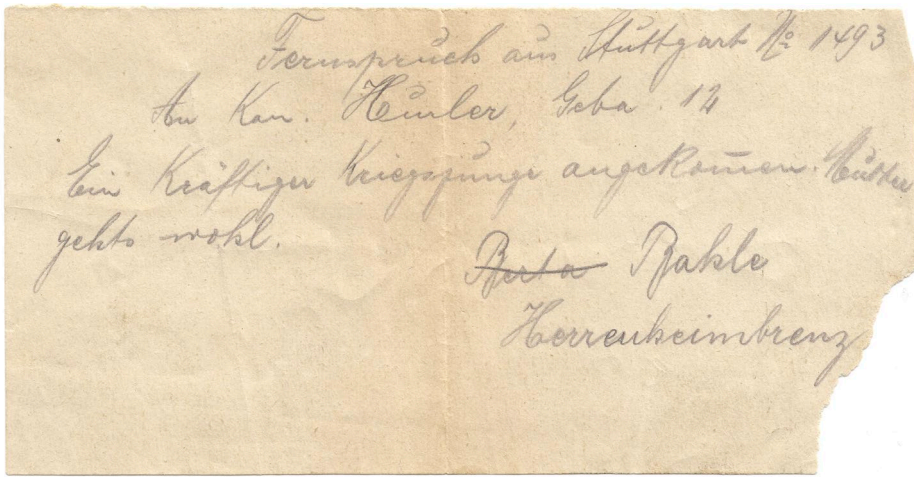 Fernspruch aus Stuttgart No 1493
An Kan. Heuler, Geba. 12
Ein Kräftiger Kriegsjunge angekom̅en. Mutter
gehts wohl.
Berta Bahle
Herrenheimbrenz